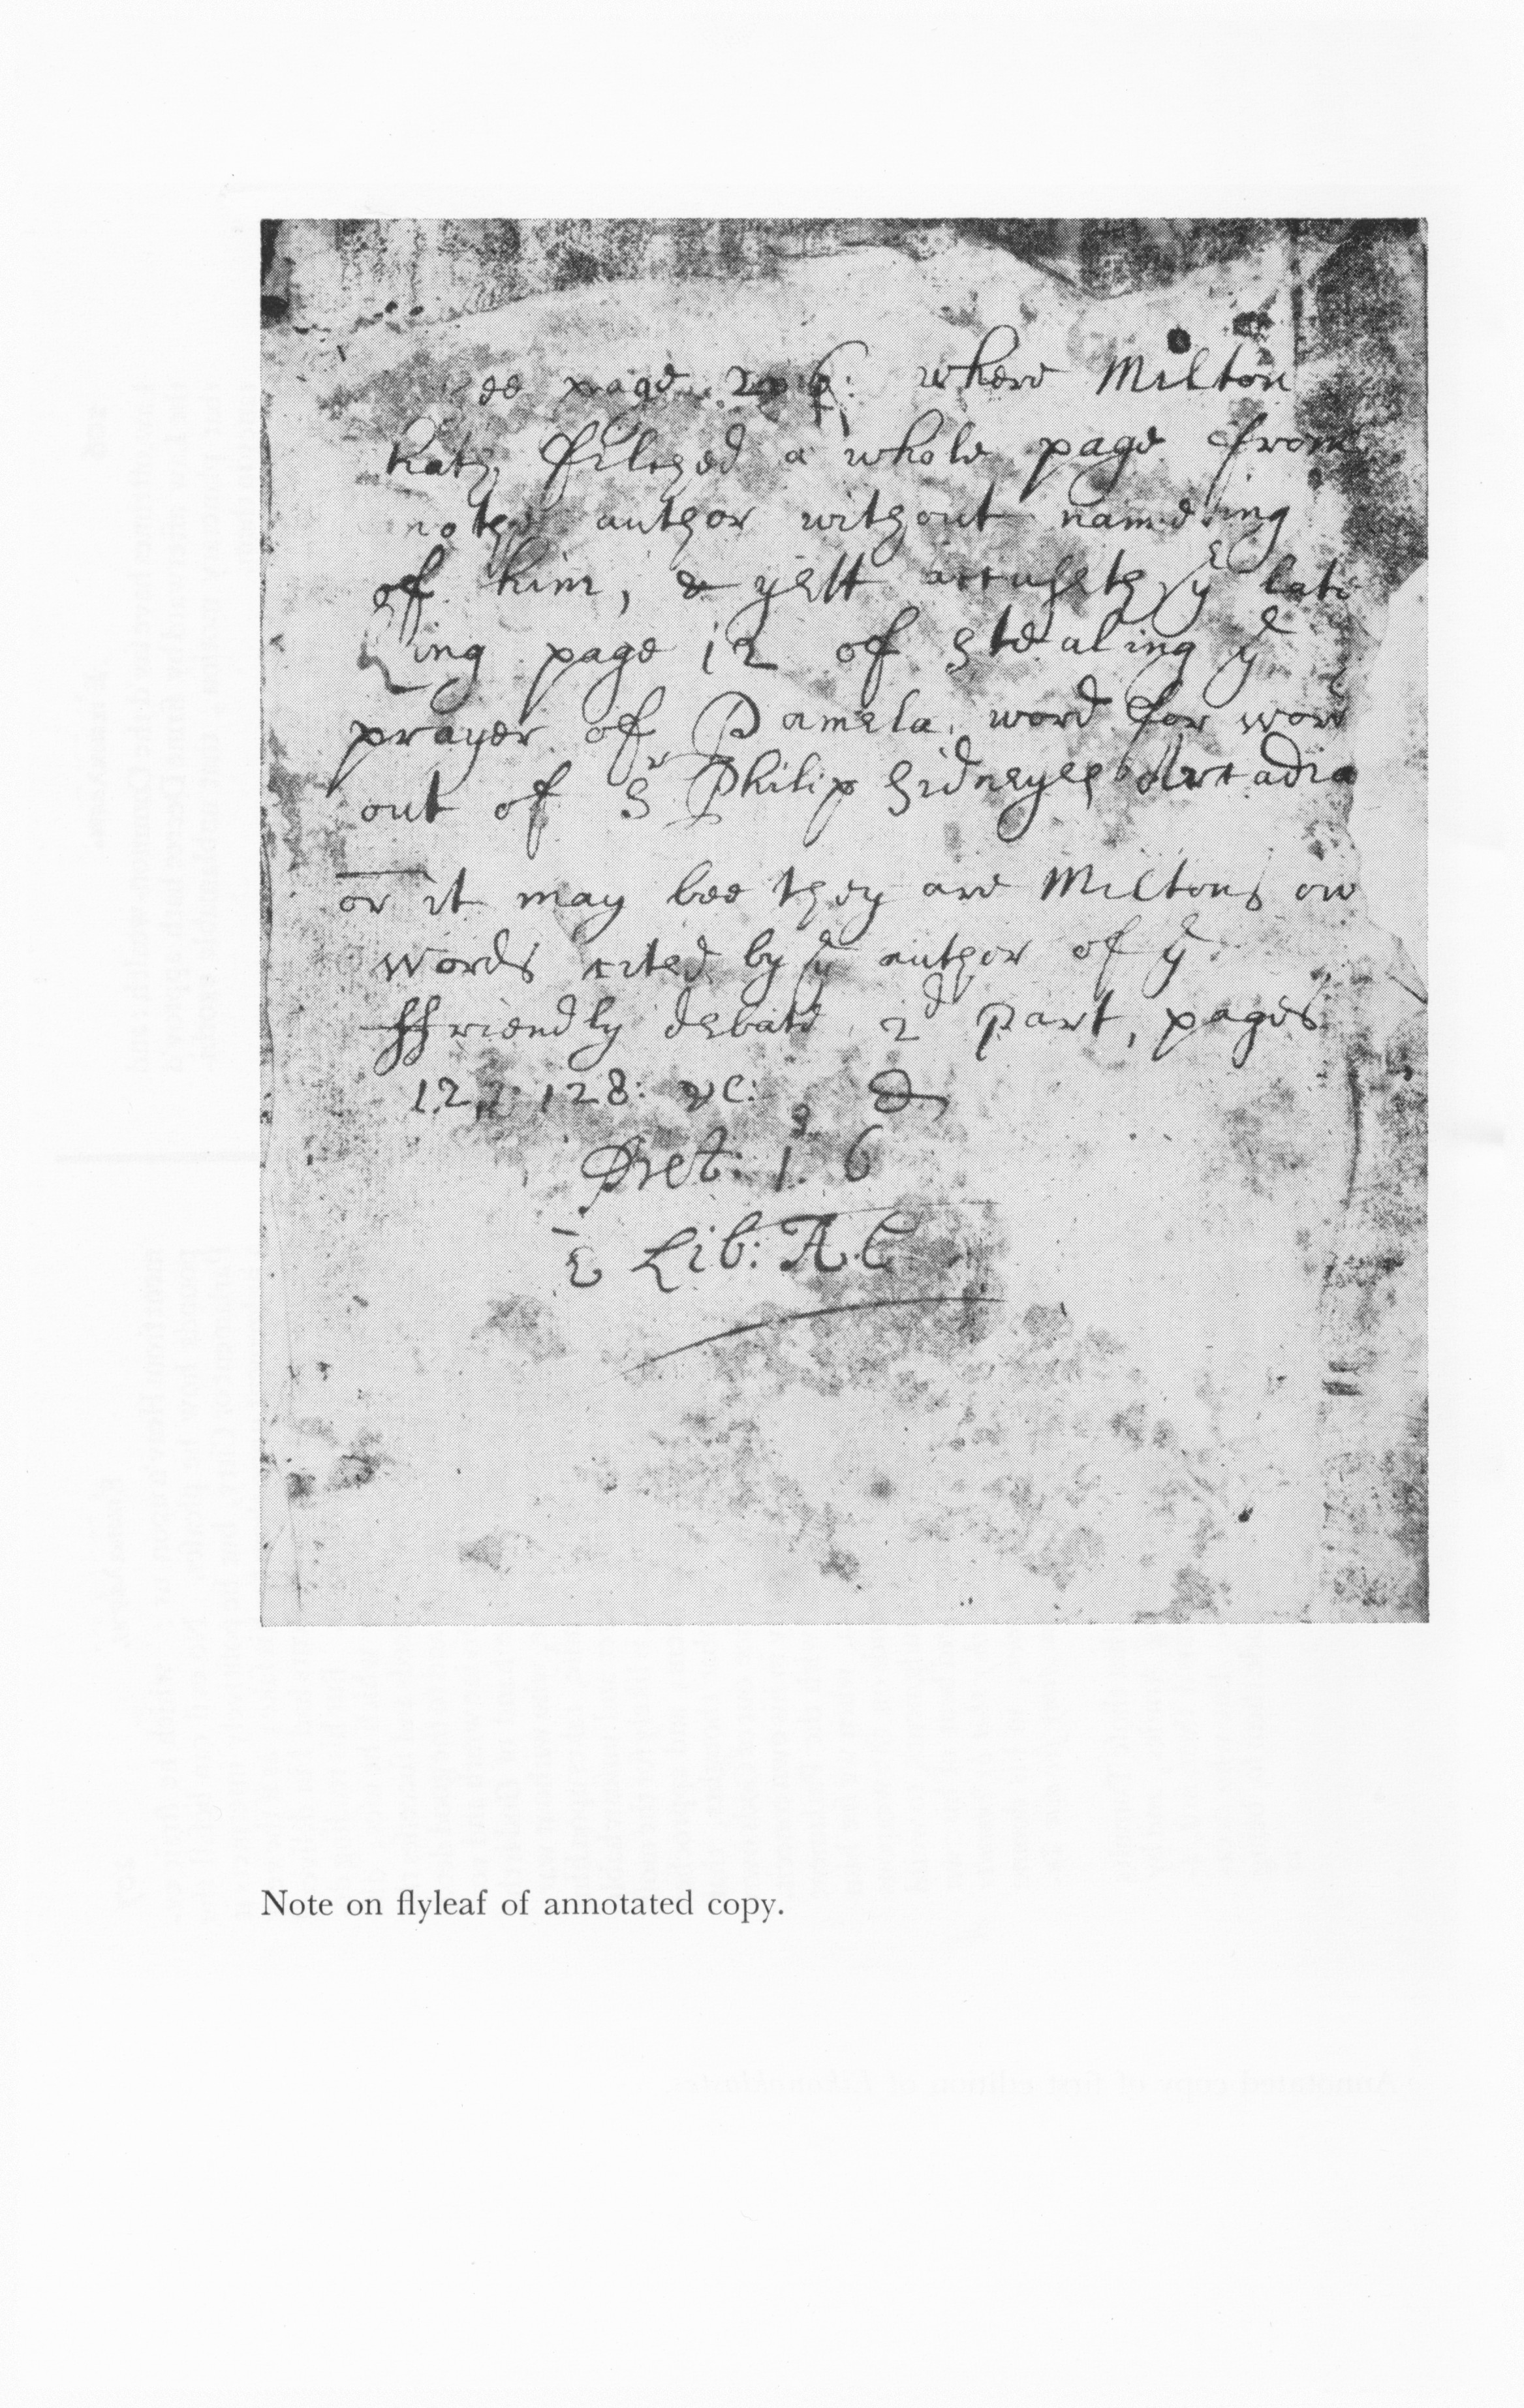 ee page 206: where Milton
hath ffilched a whole page from
nother author without nameing
of him, & yett accuseth yͤ late
King page 12 of stealing yͤ
prayer of Pamela word for word
out of Sʳ Philip Sidneyes Arcadia
or it may bee they are Miltons ow
words cited by yͤ author of yͤ
ffriendly debate 2ᵈ Part, pages
128: &c:
Pret: 1ˢ 6
E Lib: A.C
Note on flyleaf of annotated copy.